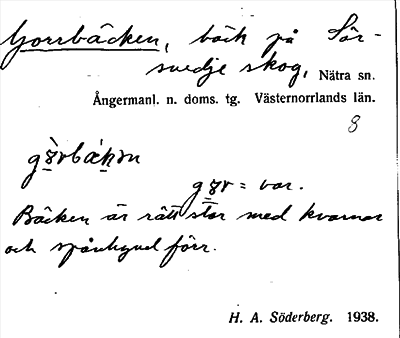 Gorrbäcken, bäck på Sör-
svedje skog, Nätra sn.
Ångermanl. n. doms. tg. Västernorrlands län.
8
gɜ̀rbæ̀kɜn
gɜr = var.
Bäcken är rätt stor med kvarnar
och spånhyvel förr.
H. A. Söderberg. 1938.